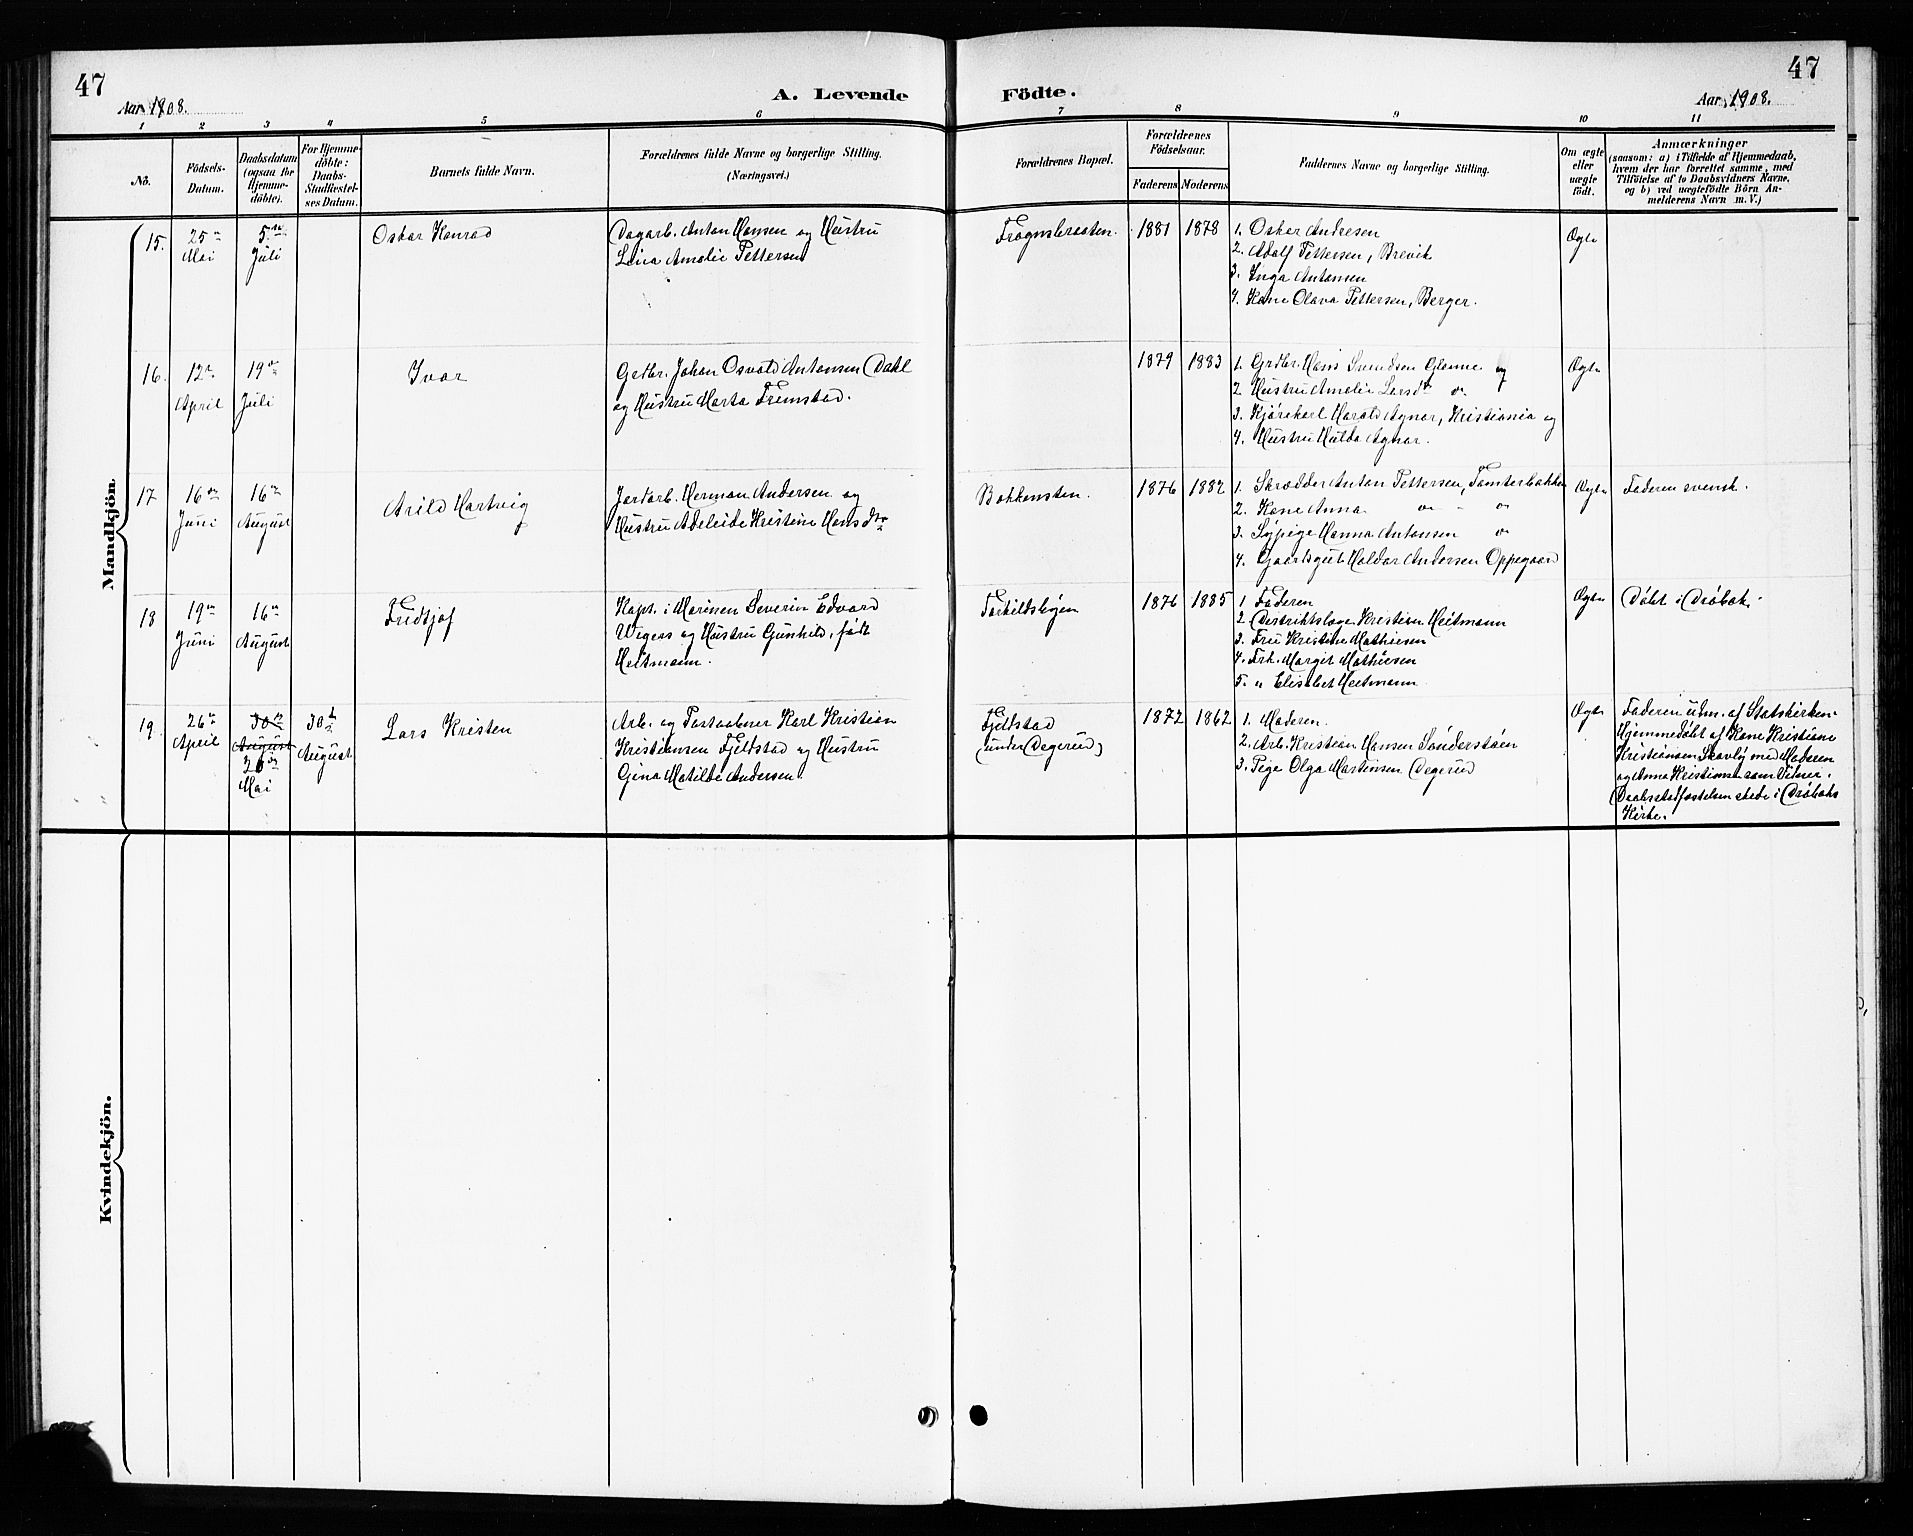 47
Aar 1908.
A. Levende Födte.
47
Aar 1908.
1 2 3 4 5 6 7 8 9 10 11
No.
Födsels-
Datum.
Daabsdatum
(ogsaa for
Hjemme-
döbte).
For Hjemme-
döbte:
Daabs-
Stadfæstel-
ses Datum.
Barnets fulde Navn.
Forældrenes fulde Navne og borgerlige Stilling.
(Næringsvei.)
Forældrenes Bopæl.
Forældrenes
Födselsaar.
Faderens Moderens
Faddernes Navne og borgerlige Stilling.
Om ægte
eller
uægte
födt.
Anmærkninger
(saasom: a) i Tilfælde af Hjemmedaab,
hvem der har forrettet samme, med
Tilföielse af to Daabsvidners Navne,
og b) ved uægtefödte Börn An-
melderens Navn m. V.)
Mandkjön.
15.
25de
Mai
5te
Juli
Oskar Konrad
Dagarb. Anton Hansen og Hustru
Lina Amalie Pettersen
Frognsbraaten.
1881 1878
1. Oskar Andresen
2. Adolf Pettersen, Brevik
3. Inga Antonsen
4. Kone Olava Pettersen, Berger.
Ægte
16.
12te
April
19de
Juli
Ivar
Grdbr. Johan Osvald Antonsen Dahl
og Hustru Marta Fremstad.
1879 1883
1. Grdbr. Hans Svendsen Glenne og
2. Hustru Amalie Larsdtr do
3. Kjörekarl Harald Agnar, Kristiania og
4. Hustru Hulda Agnar.
Ægte
17
16de
Juni
16de
August
Arild Hartvig
Jordarb. Herman Andersen og
Hustru Adeleide Kristine Hansdtr
Bakkensten.
1876 1882
1. Skrædder Anton Pettersen, Tomterbakken
2. Kone Anna do - do
3. Sypige Hanna Antonsen do
4. Gaardsgut Haldor Andersen Oppegaard
Ægte
Faderen svensk.
18
19de
Juni
16de
August
Fridtjof
Kapt. i Marinen Severin Edvard
Wegers og Hustru Gunhild, födt
Heitmann.
Torkildsbyen
1876 1885
1 Faderen
2 Distriktslæge Kristian Heitmann
3. Fru Kristine Mathiesen
4. Frk. Margit Mathiesen
5. " Elisabet Heitmann
Ægte
Döbt i Dröbak.
19.
26de
April
30te
August
26de
Mai
30te
August
Lars Kristen
Arb. og Postaabner Karl Kristian
Kristiansen Fjeldstad og Hustru
Gina Matilde Andersen.
Fjeldstad
(under Degerud)
1872 1862
1. Moderen.
2. Arb. Kristian Hansen Sönderstøen
3. Pige Olga Martinsen Degerud
Ægte
Faderen udm. af Statskirken.
Hjemmedöbt af Kone Kristiane
Kristiansen Skovly med Moderen
og Anna Kristians. som Vidner.
Daabsstadfæstelsen skede i Dröbaks
Kirke.
Kvindekjön.